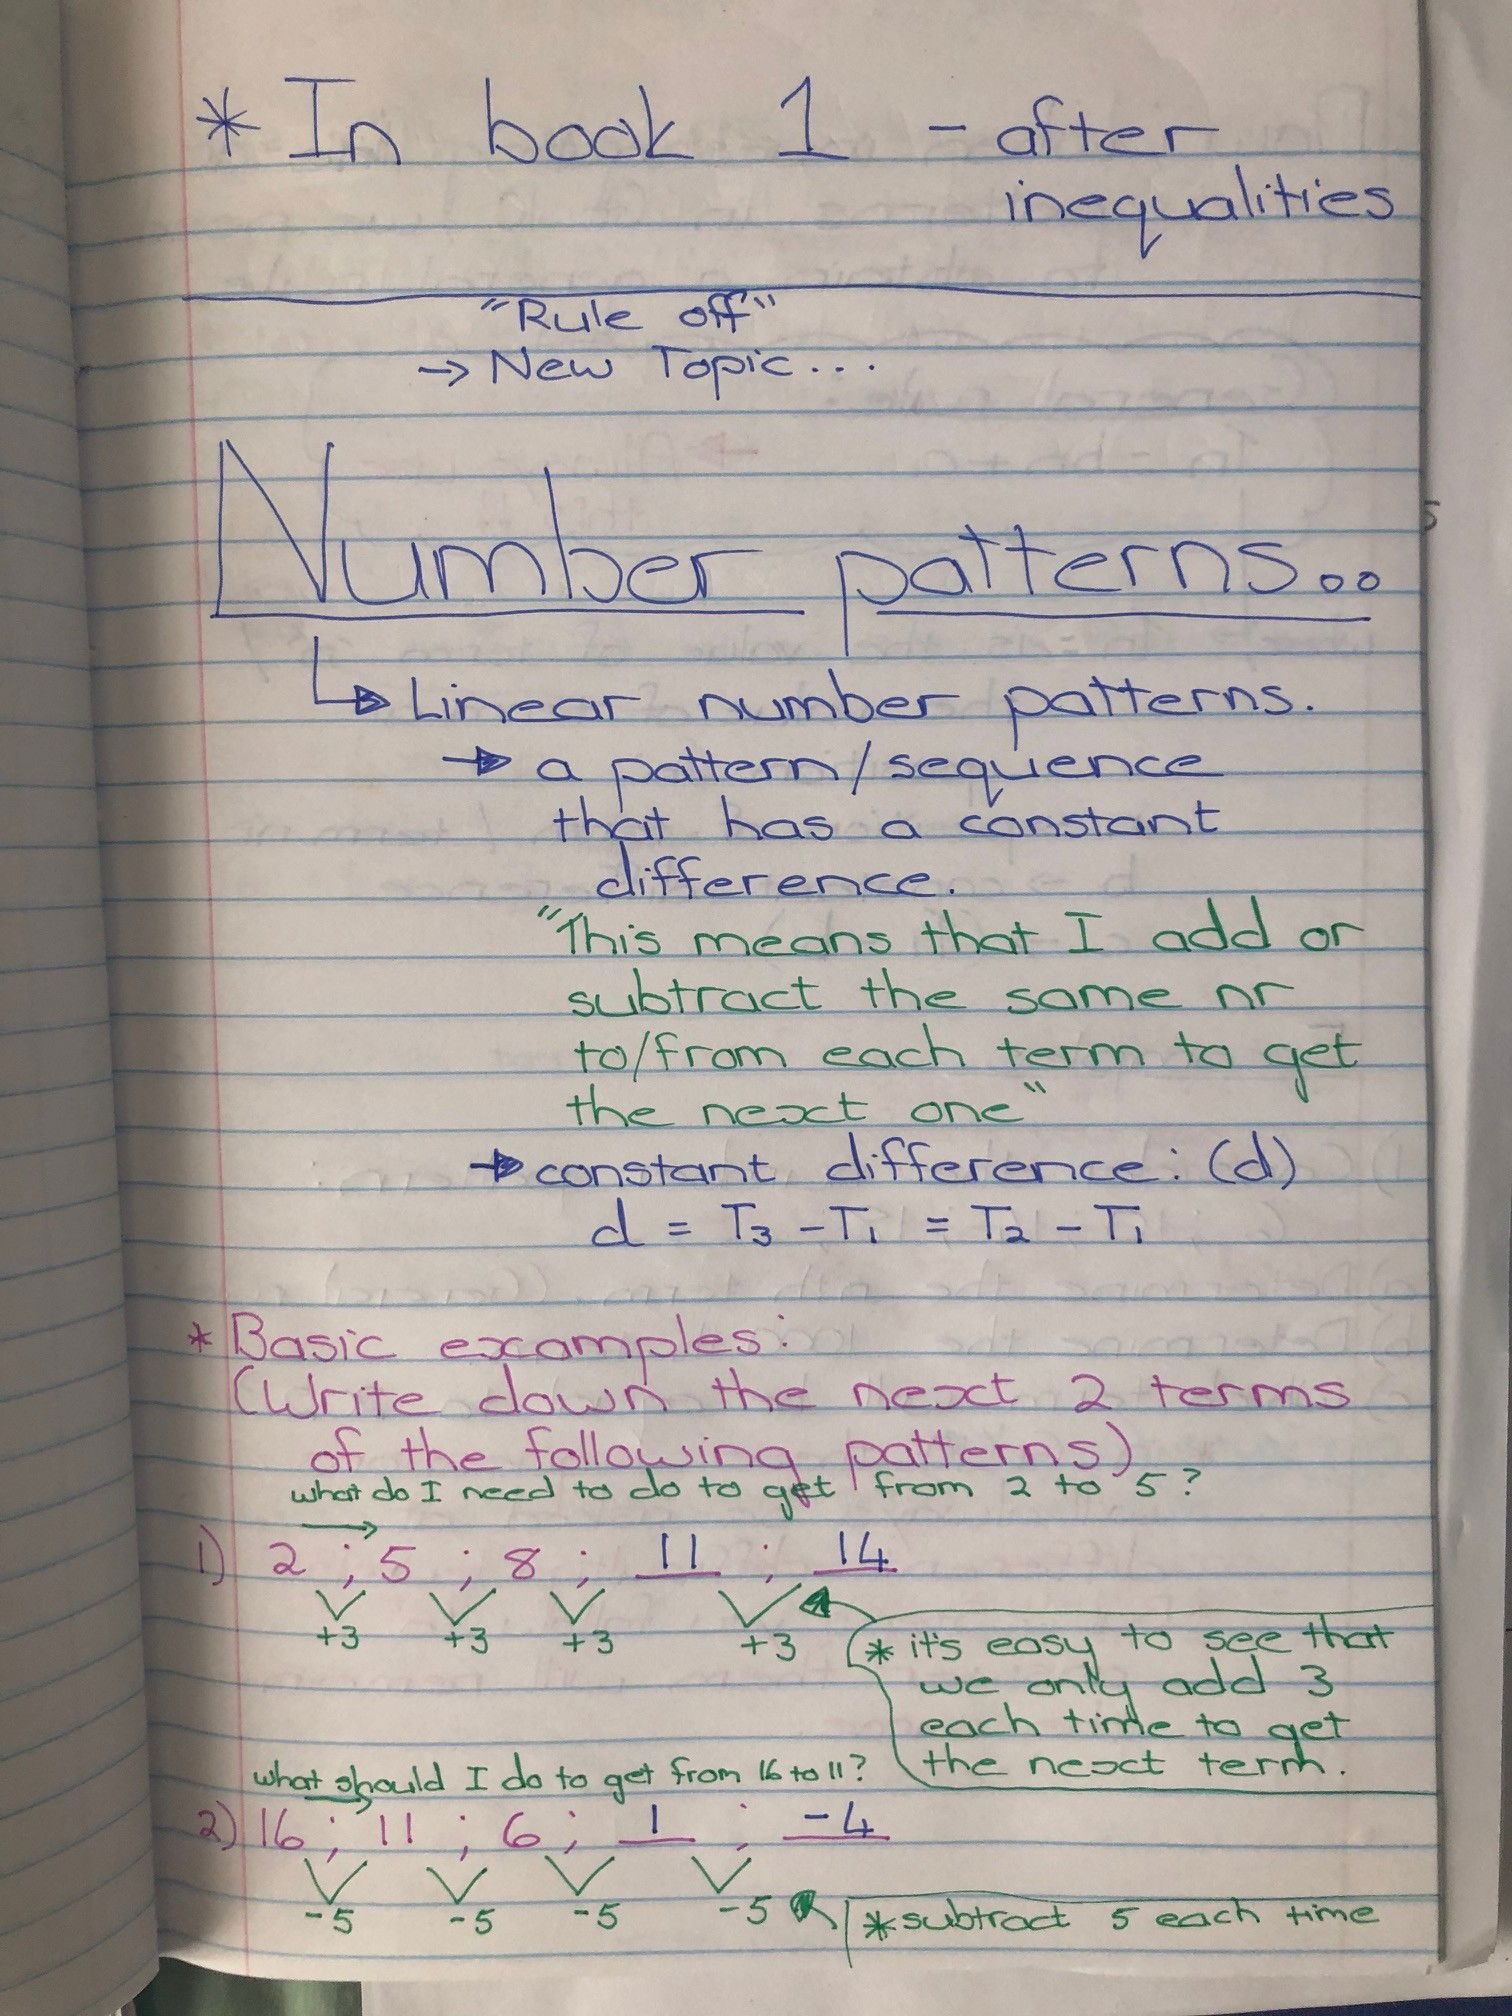 * In book 1 - after
inequalities
"Rule off"
→ New Topic...
Number patterns...
↳ Linear number patterns.
→ a pattern/sequence
that has a constant
difference.
"This means that I add or
subtract the same nr
to/from each term to get
the next one"
→ constant difference: (d)
d = T₃ - T₁ = T₂ - T₁
* Basic examples:
(Write down the next 2 terms
of the following patterns)
what do I need to do to get from 2 to 5?
1) 2 ; 5 ; 8 ; 11 ; 14
+3 +3 +3 +3
* it's easy to see that
we only add 3
each time to get
the next term.
what should I do to get from 16 to 11?
2) 16 ; 11 ; 6 ; 1 ; -4
-5 -5 -5 -5
* subtract 5 each time